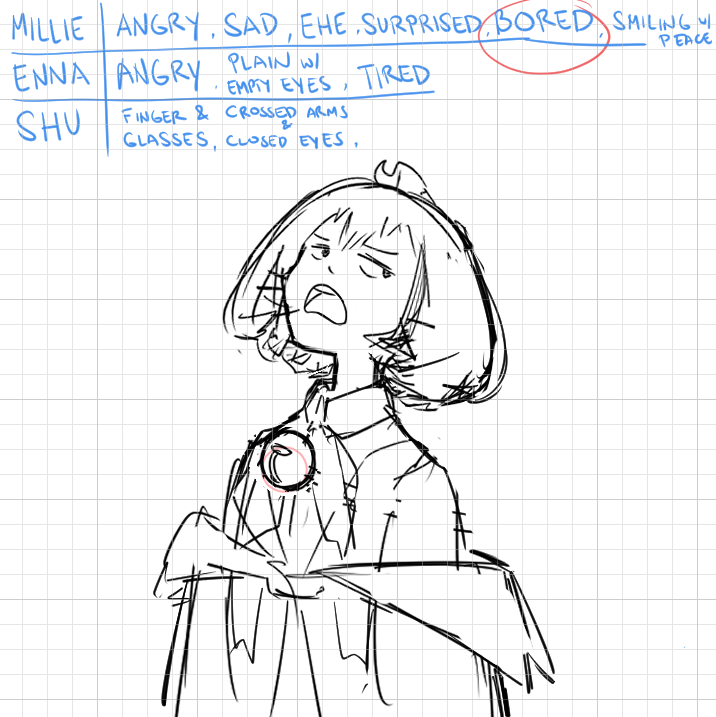 MILLIE ANGRY, SAD, EHE, SURPRISED, BORED, SMILING W/ PEACE
ENNA ANGRY, PLAIN W/ EMPTY EYES, TIRED
SHU FINGER & GLASSES, CROSSED ARMS & CLOSED EYES,